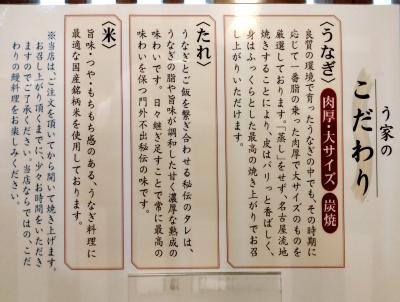 う家の
こだわり
〈うなぎ〉 肉厚・大サイズ 炭焼
良質の環境で育ったうなぎの中でも、その時期に
応じて一番脂の乗った肉厚で大サイズのものを
厳選しております。「蒸し」をせず、名古屋流地
焼きすることにより、皮はパリっと香ばしく、
身はふっくらとした最高の焼き上がりでお召
し上がりいただけます。
〈たれ〉
うなぎとご飯を繋ぎ合わせる秘伝のタレは、
うなぎの脂や旨味が調和した甘く濃厚な熟成の
味わいです。日々継ぎ足すことで常に最高の
味わいを保つ門外不出秘伝の味です。
〈米〉
旨味・つや・もちもち感のある、うなぎ料理に
最適な国産銘柄米を使用しております。
※当店は、ご注文を頂いてから開いて焼き上げます。
お召し上がり頂くまでに、少々お時間をいただき
ますのでご了承ください。当店ならではの、こだ
わりの鰻料理をお楽しみください。